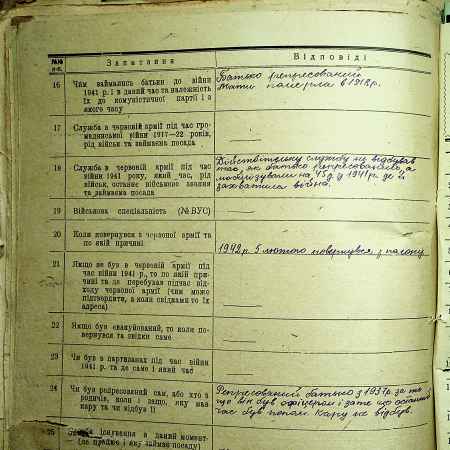 №№ п-п.
Запитання
Відповіді
16
Чим займались батьки до війни
1941 р. і в даний час та належність
їх до комуністичної партії і з
якого часу
Батько репресований
Мати померла в 1918 р.
17
Служба в червоній армії під час гро-
мадянської війни 1917—22 років,
рід військ та займаєма посада
18
Служба в червоній армії під час
війни 1941 року, який час, рід
військ, останнє військове звання
та займаєма посада
Дійствітельну службу не відбував
так, як батько репресований, а
мобілізували на 45 д. у 1941 р. де й
захватила війна.
19
Військова спеціяльність (№ ВУС)
20
Коли повернувся з червоної армії та
по якій причині
1942 р. 5 лютого повернувся, з полону
21
Якщо не був в червоній армії під
час війни 1941 р., то по якій при-
чині та де перебував підчас від-
ходу червоної армії (чим може
підтвердити, а коли свідками то їх
адреса)
22
Якщо був евакуйований, то коли по-
вернувся та звідки саме
23
Чи був в партизанах під час війни
1941 р. та де саме і який час
24
Чи був репресований сам, або хто з
родичів, коли і защо, яку мав
кару та чи відбув її
Репресований батько з 1937 р. за те
що він був офіцером і зате що останній
час був попом. Кару не відбув.
25
Засоби існування в даний момент
(де працює і яку займає посаду)